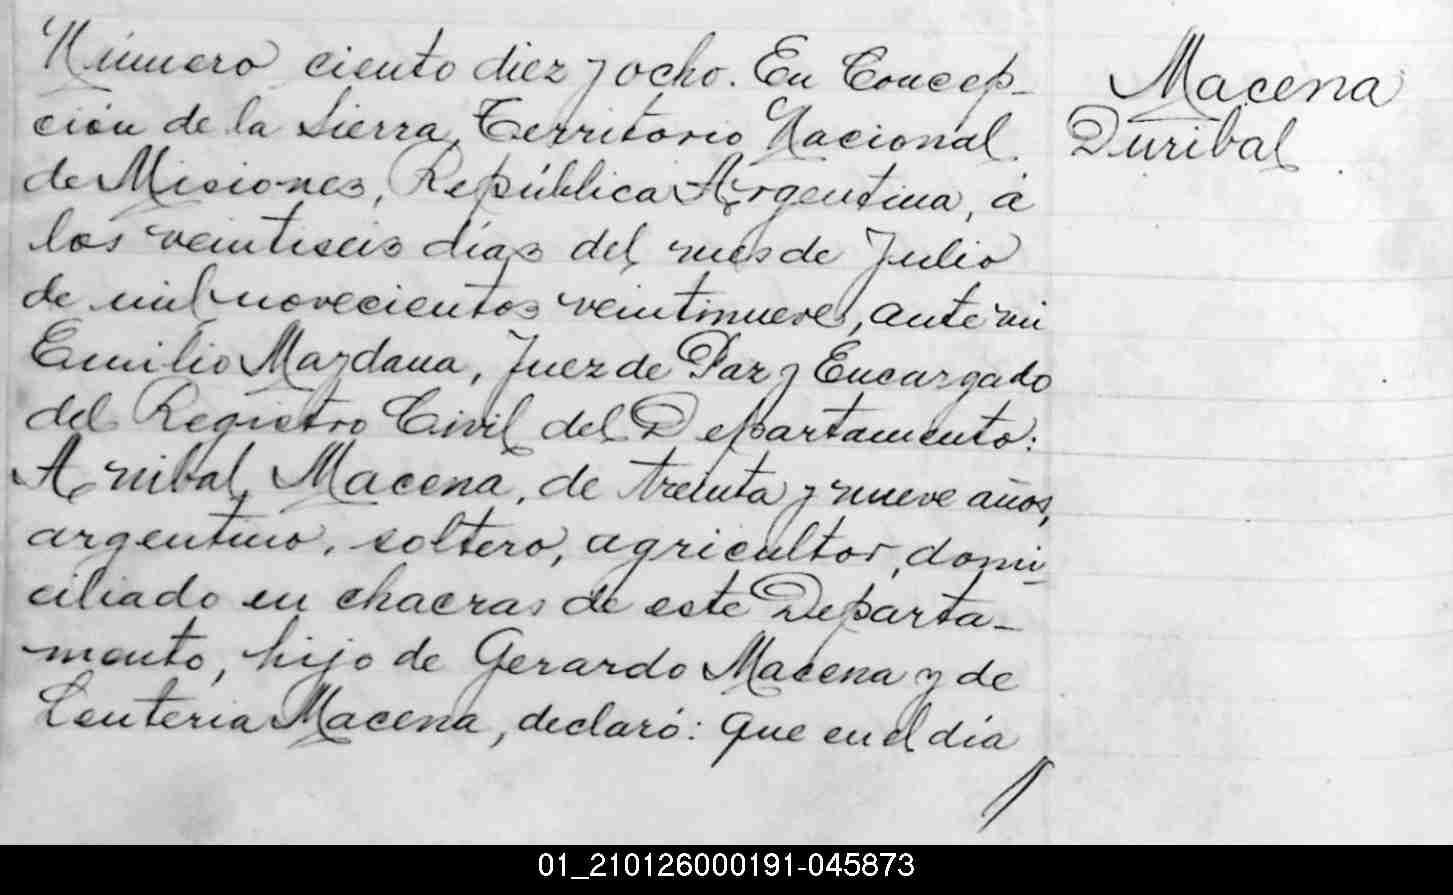 Número ciento diez y ocho. En Concep-
ción de la Sierra, Territorio Nacional
de Misiones, República Argentina, á
los veintiseis días del mes de Julio
de mil novecientos veintinueve, ante mi
Emilio Maydana, Juez de Paz y Encargado
del Registro Civil del Departamento:
Anibal Macena, de treinta y nueve años,
argentino, soltero, agricultor, domi-
ciliado en chacras de este Departa-
mento, hijo de Gerardo Macena y de
Macena, declaró: Que en el día
Macena
Duribal
01_210126000191-045873